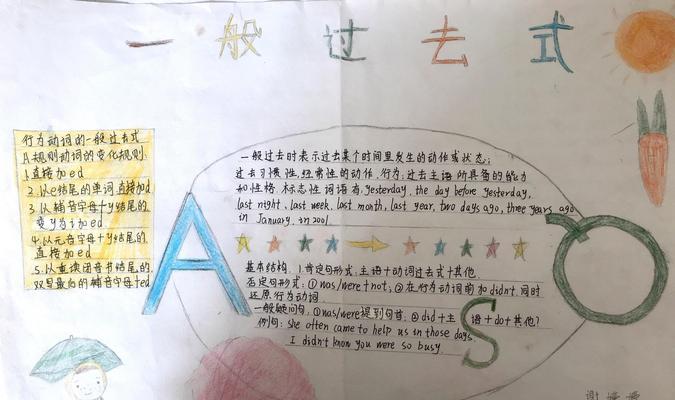 一般过去式
行为动词的一般过去式
A规则动词的变化规则.
1.直接加ed
2.以e结尾的单词,直接加d
3.以辅音字母+y结尾的
变y为i加ed
4.以元音字母+y结尾的
直接加ed
5.以重读闭音节结尾的,
双写最后的辅音字母+ed
A
一般过去时表示过去某个时间里发生的动作或状态;
过去习惯性,经常性的动作,行为;过去主语所具备的能力
和性格,标志性词语有,yesterday, the day before yesterday,
last night, last week, last month, last year, two days ago, three years ago
in January, in 2001.
基本结构,1.肯定句形式:主语+动词过去式+其他.
否定句形式:①was/were+not;②在行为动词前加didn't,同时
还原行为动词
一般疑问句,①was/were提到句首,②did+主语+do+其他?
例句: She often came to help us in those days
I didn't know you were so busy.
S